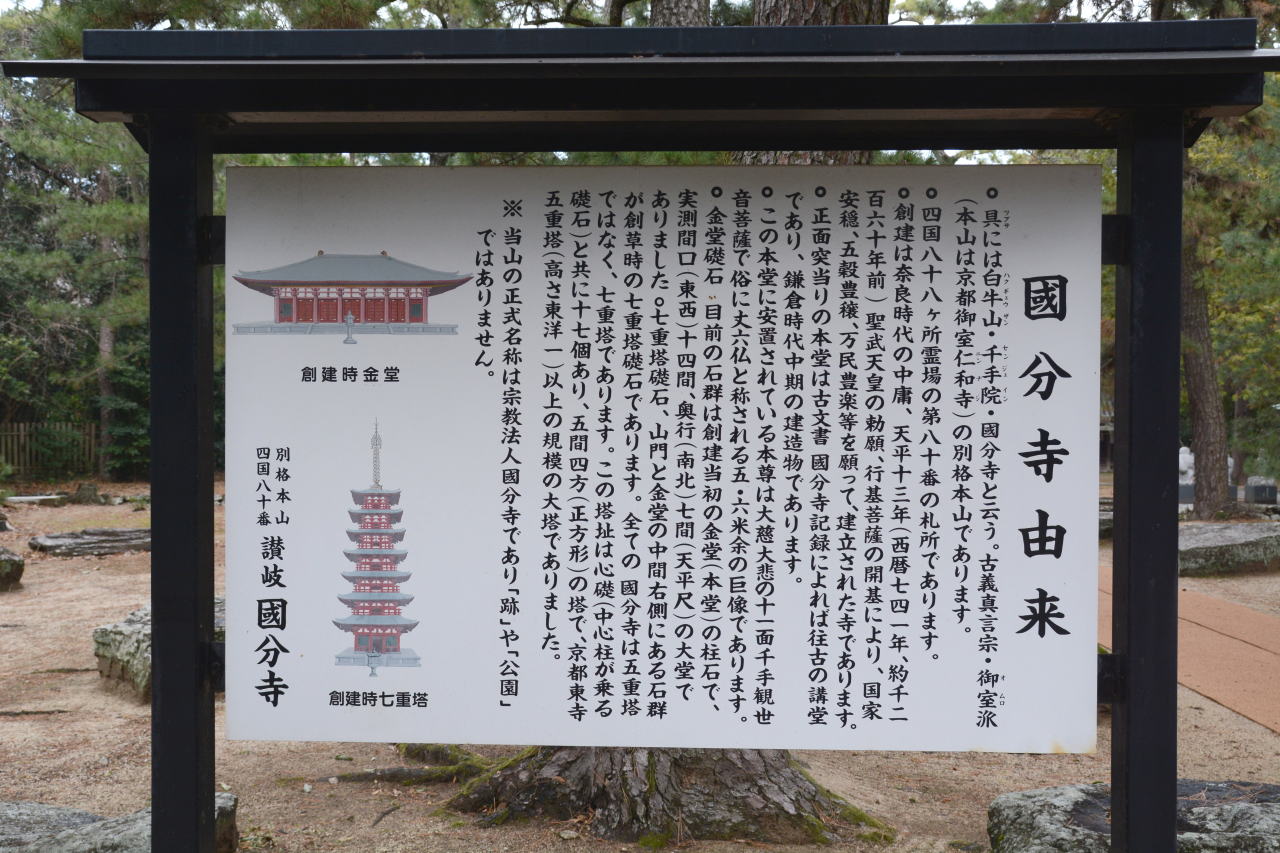 國分寺由来
○具には白牛山・千手院・國分寺と云う。古義真言宗・御室派
(本山は京都御室仁和寺)の別格本山であります。
○四国八十八ヶ所霊場の第八十番の札所であります。
○創建は奈良時代の中庸、天平十三年(西暦七四一年、約千二
百六十年前)聖武天皇の勅願、行基菩薩の開基により、国家
安穏、五穀豊穣、万民豊楽等を願って、建立された寺であります。
○正面突当りの本堂は古文書 國分寺記録によれば往古の講堂
であり、鎌倉時代中期の建造物であります。
○この本堂に安置されている本尊は大慈大悲の十一面千手観世
音菩薩で俗に丈六仏と称される五・六米余の巨像であります。
○金堂礎石 目前の石群は創建当初の金堂(本堂)の柱石で、
実測間口(東西)十四間、奥行(南北)七間(天平尺)の大堂で
ありました。○七重塔礎石、山門と金堂の中間右側にある石群
が創草時の七重塔礎石であります。全ての 國分寺は五重塔
ではなく、七重塔であります。この塔址は心礎(中心柱が乗る
礎石)と共に十七個あり、五間四方(正方形)の塔で、京都東寺
五重塔(高さ東洋一)以上の規模の大塔でありました。
※当山の正式名称は宗教法人國分寺であり「跡」や「公園」
ではありません。
創建時金堂
創建時七重塔
別格本山
四国八十番
讃岐 國分寺